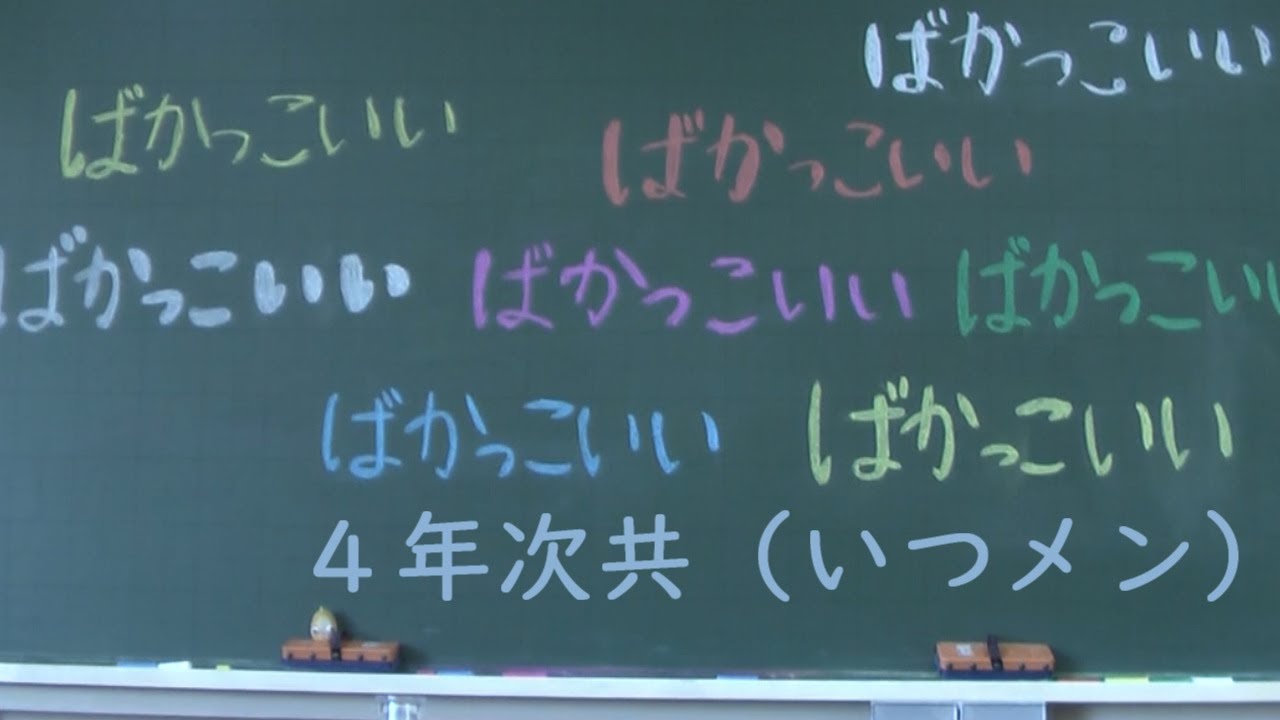 ばかっこいい
ばかっこいい
ばかっこいい
ばかっこいい
ばかっこいい
ばかっこい
ばかっこいい
ばかっこいい
４年次共（いつメン）